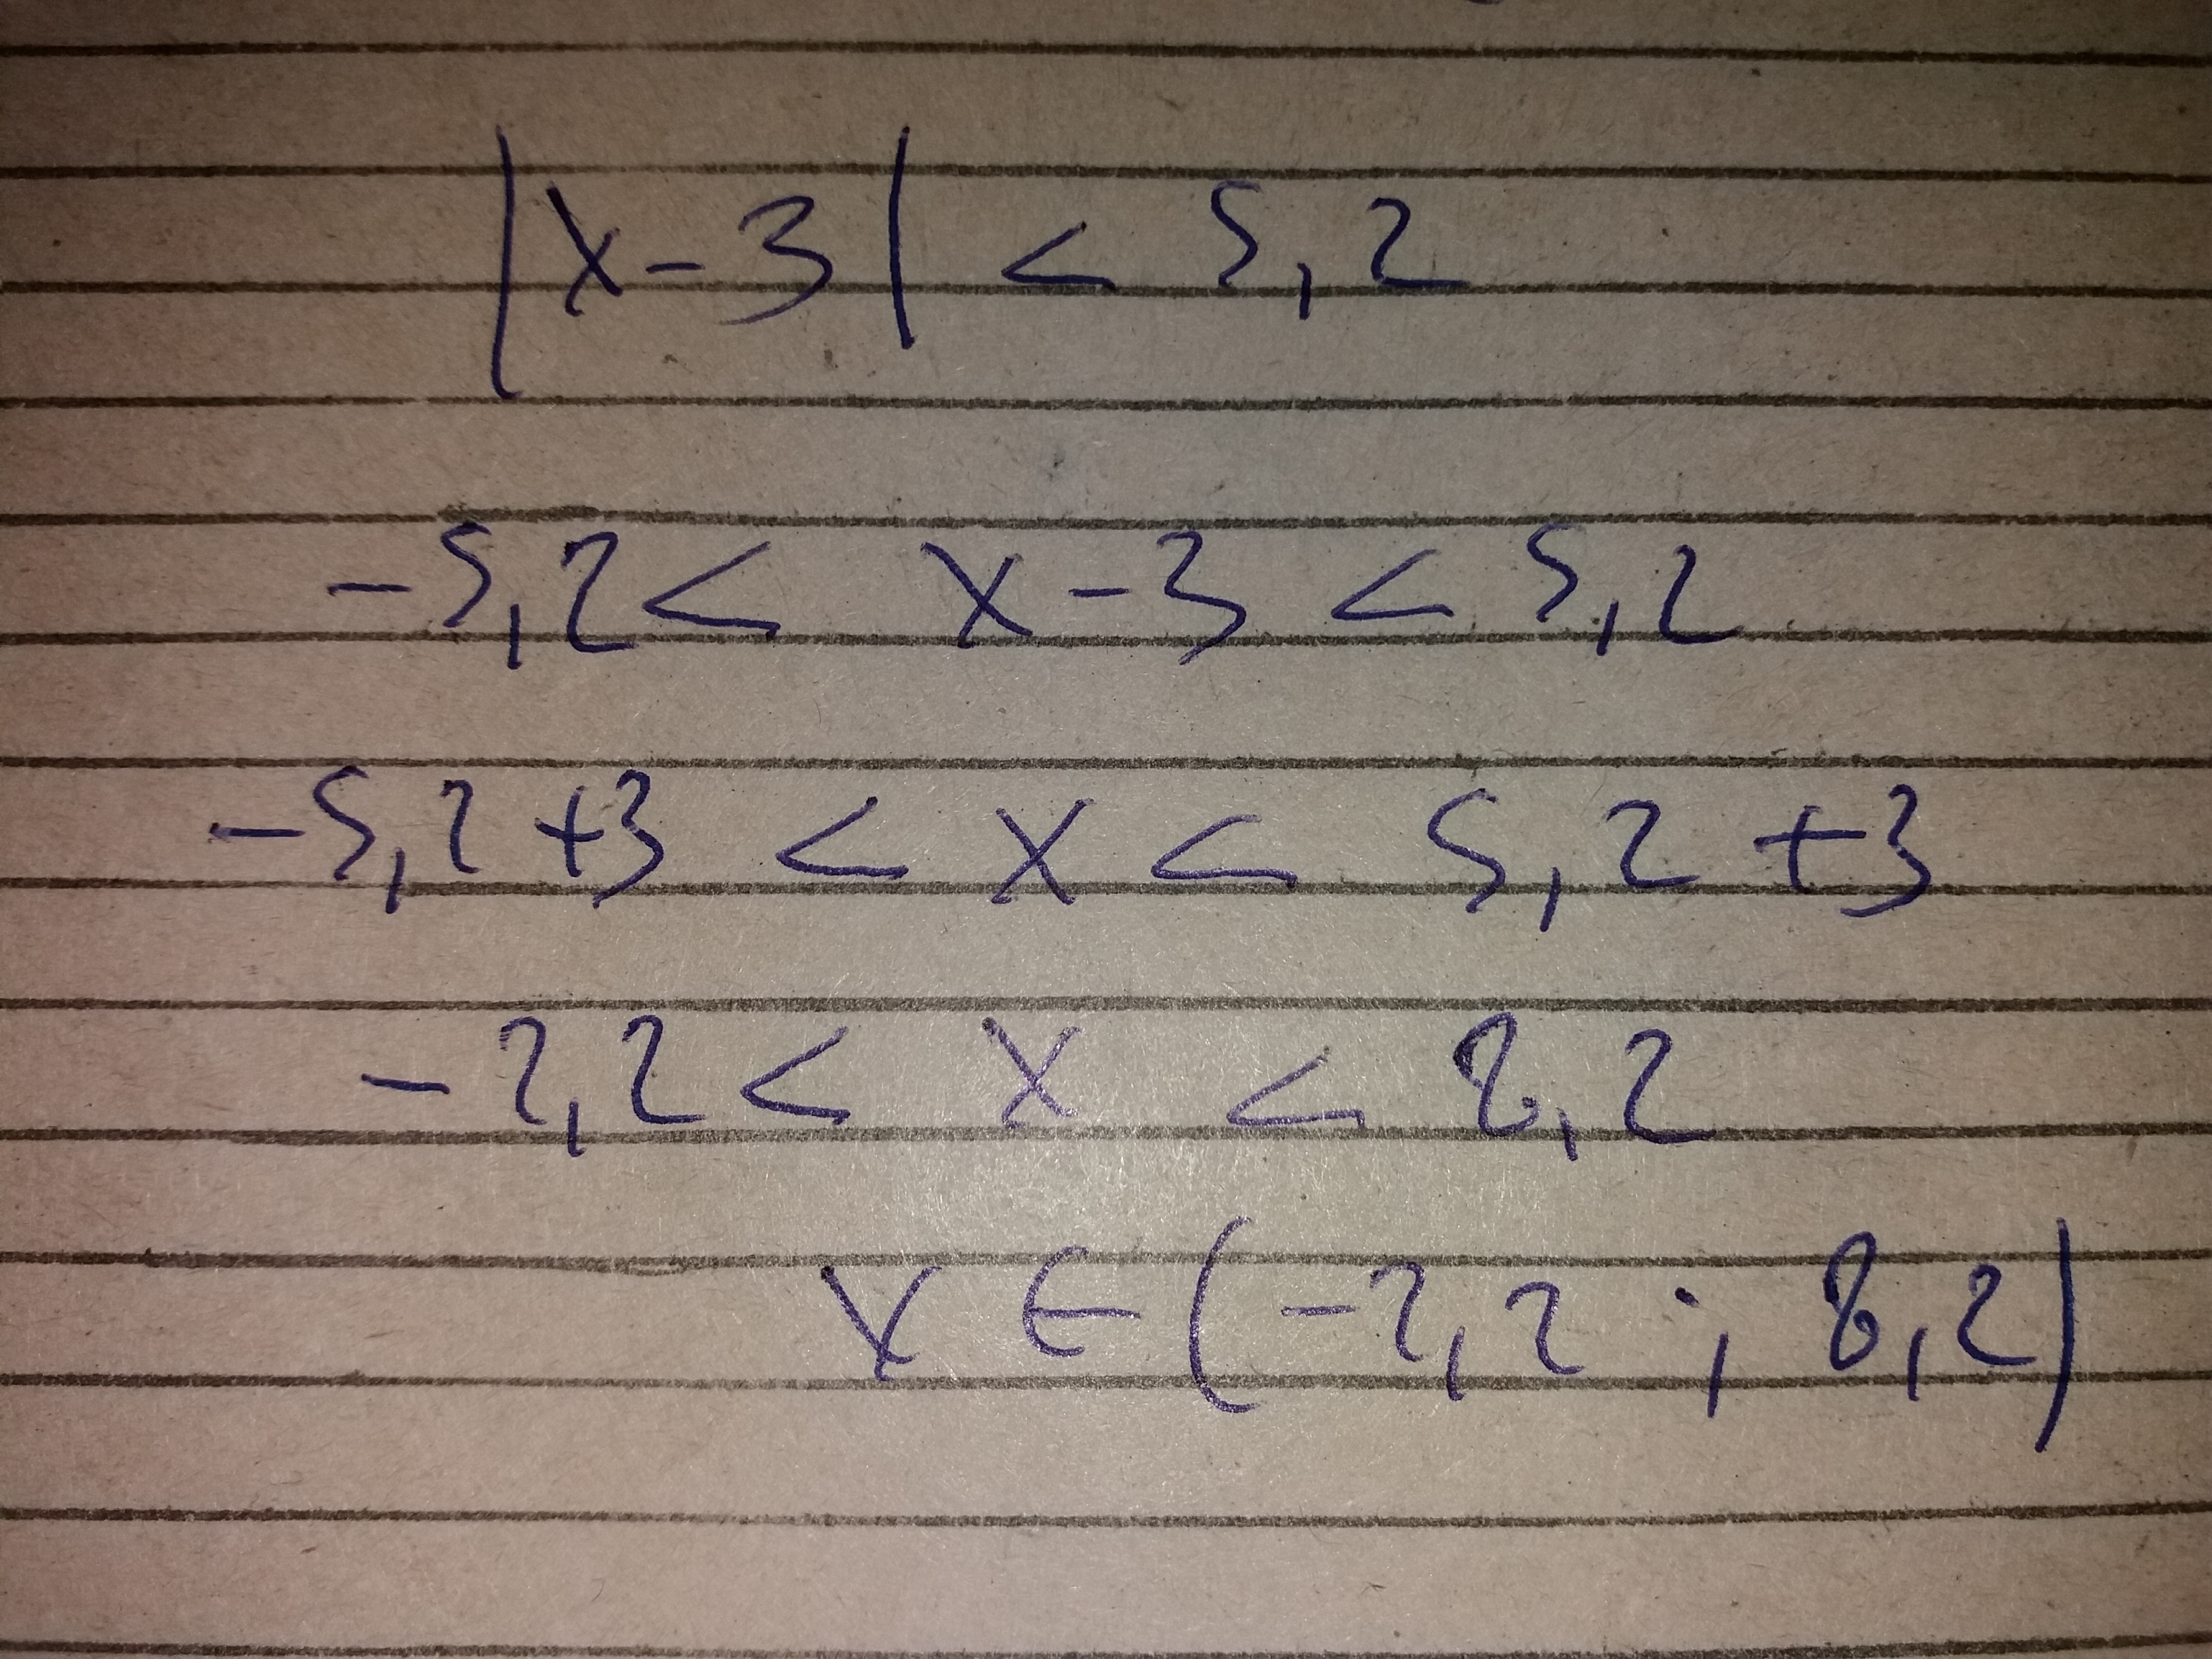 |x-3| < 5,2
-5,2 < x-3 < 5,2
-5,2+3 < x < 5,2+3
-2,2 < x < 8,2
x ∈ (-2,2 ; 8,2)